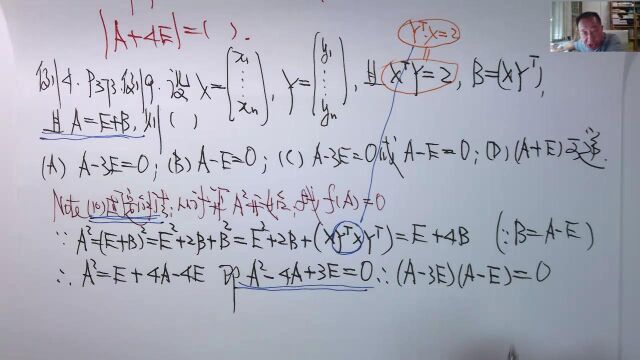 |A+4E|=( ).
Yᵀ·X=2
例4. P37例9. 设 X=(x₁ ⋮ xₙ), Y=(y₁ ⋮ yₙ), 且 XᵀY=2, B=(XYᵀ),
且 A=E+B, 则( )
(A) A-3E=0; (B) A-E=0; (C) A-3E=0或A-E=0; (D) (A+E)可逆.
Note (10) A² f(A)=0
∵ A²=(E+B)²=E²+2B+B²=E²+2B+(XYᵀXYᵀ)=E+4B (∵B=A-E)
∴ A²=E+4A-4E 即 A²-4A+3E=0 ∴(A-3E)(A-E)=0